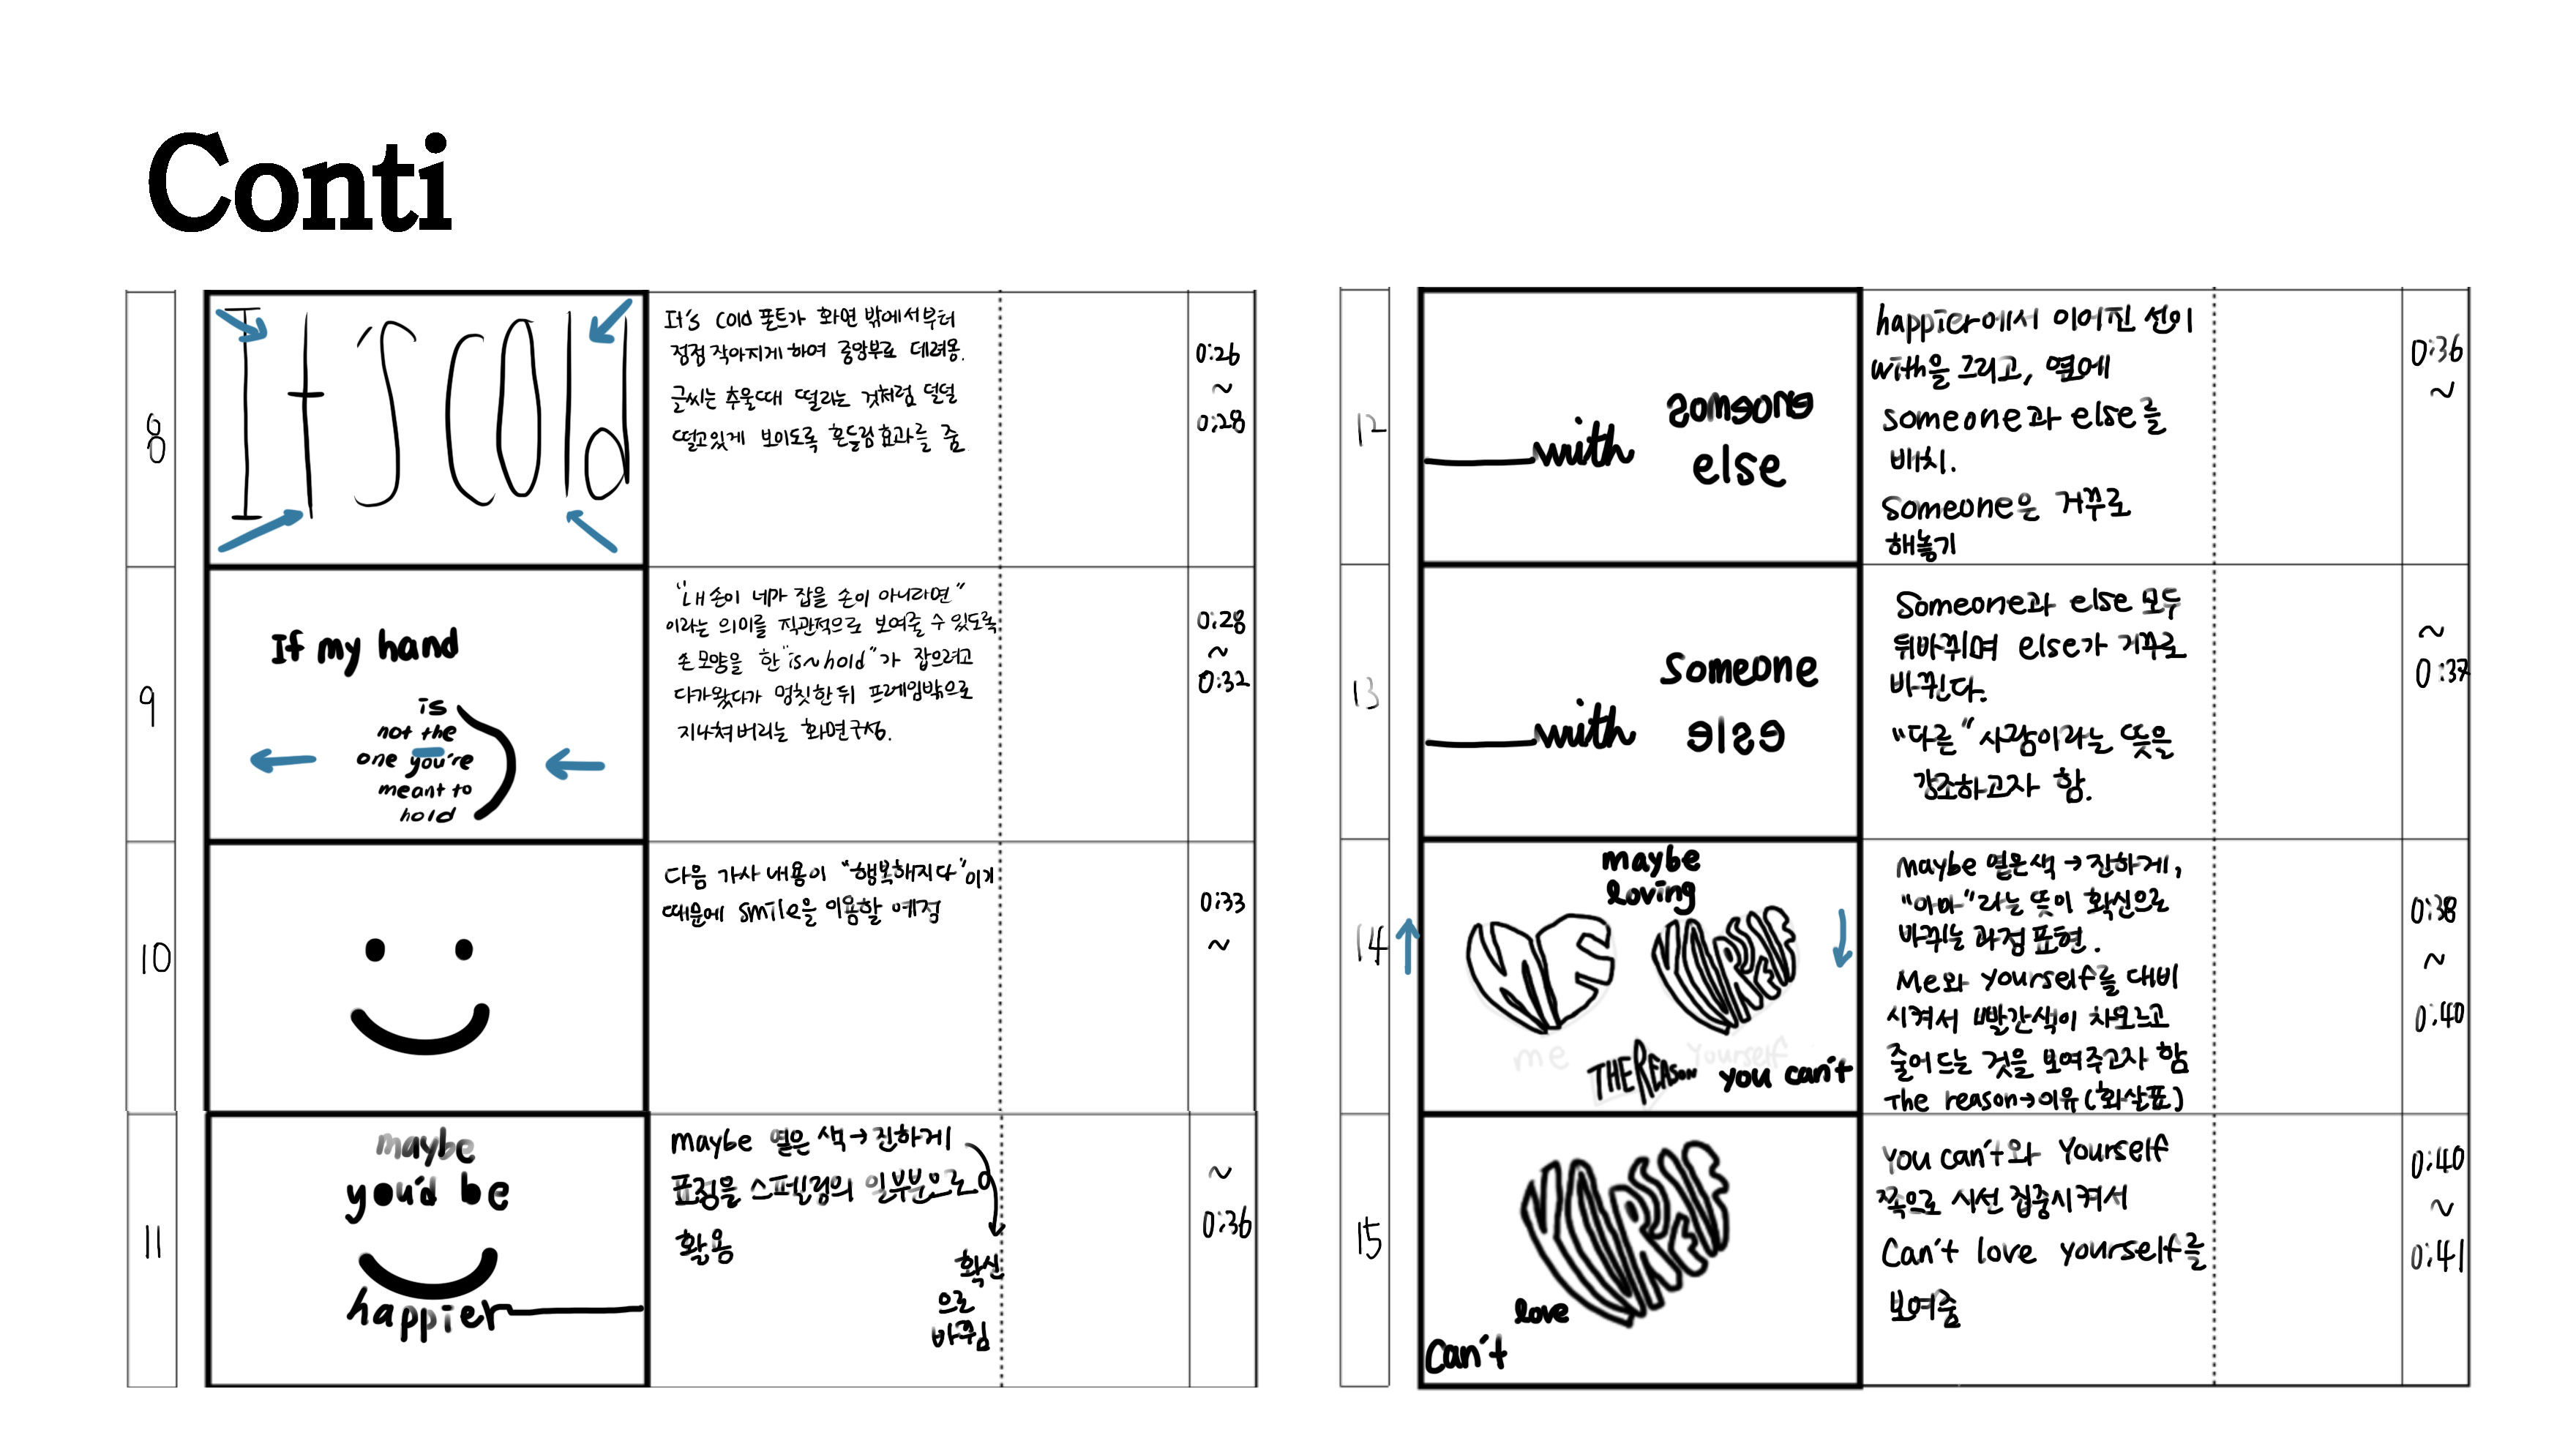 Conti
8
It's cold
It's cold 폰트가 화면 밖에서부터
점점 작아지게 하여 중앙부로 데려옴.
글씨는 추울때 떨리는 것처럼 덜덜
떨고있게 보이도록 흔들림효과를 줌
0:26
~
0:28
9
If my hand
is
not the
one you're
meant to
hold
"내 손이 네가 잡을 손이 아니라면"
이라는 의미를 직관적으로 보여줄 수 있도록
손 모양을 한 "is~hold"가 잡으려고
다가왔다가 멈칫한 뒤 프레임밖으로
지나쳐버리는 화면구성.
0:28
~
0:32
10
다음 가사 내용이 "행복해지다"이기
때문에 smile을 이용할 예정
0:33
~
11
maybe
you'd be
happier
maybe 옅은 색→진하게
표정을 스펠링의 일부분으로
활용
확신
으로
바뀜
~
0:36
12
with
someone
else
happier에서 이어진 선이
with을 그리고, 옆에
someone과 else를
배치.
someone은 거꾸로
해놓기
0:36
~
13
with
someone
else
someone과 else 모두
뒤바뀌며 else가 거꾸로
바뀐다.
"다른" 사람이라는 뜻을
강조하고자 함.
~
0:37
14
maybe
loving
ME
YOURSELF
me
yourself
THE REASON
you can't
maybe 옅은색→진하게,
"아마"라는 뜻이 확신으로
바뀌는 과정 표현.
Me와 yourself를 대비
시켜서 빨간색이 차오르고
줄어드는 것을 보여주고자 함
The reason→이유(화살표)
0:38
~
0:40
15
YOURSELF
love
can't
you can't와 yourself
쪽으로 시선 집중시켜서
can't love yourself를
보여줌
0:40
~
0:41